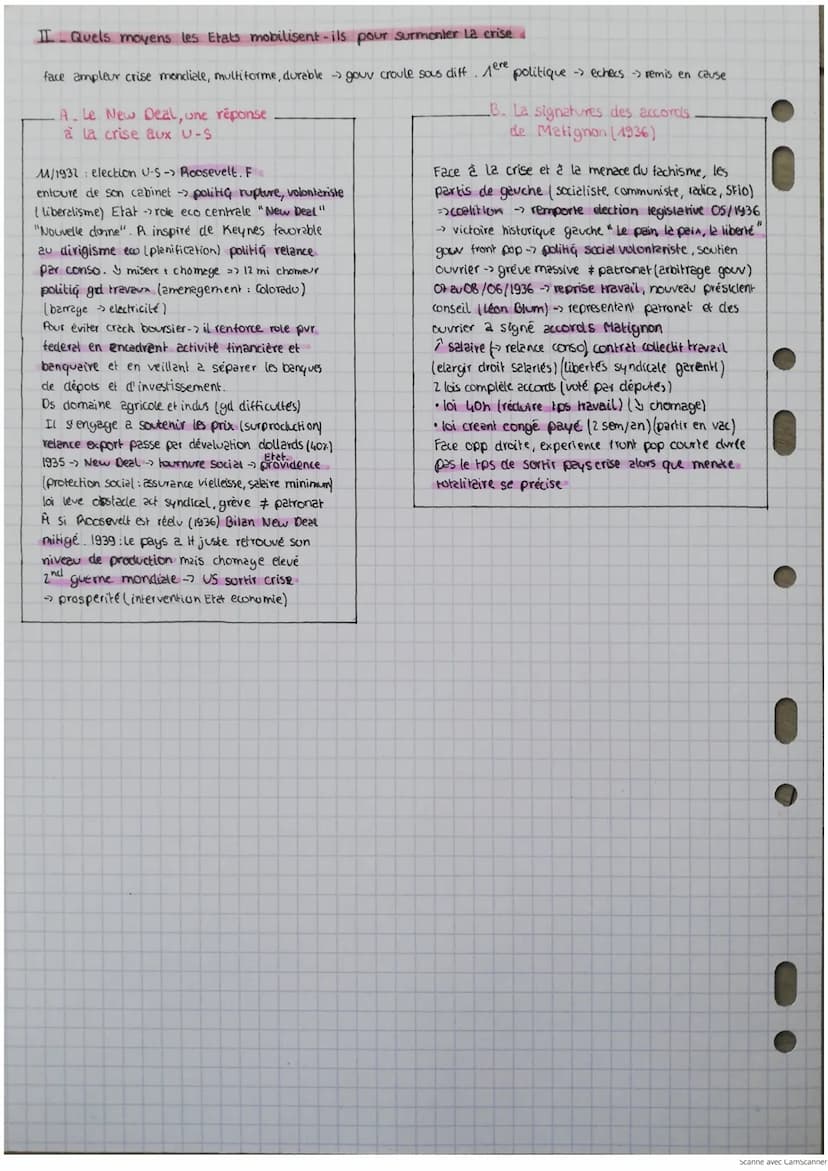 II - Quels moyens les Etats mobilisent-ils pour surmonter la crise
face ampleur crise mondiale, multiforme, durable -> gouv croule sous diff. 1ere politique -> echecs -> remis en cause
A - Le New Deal, une réponse
à la crise aux U-S
11/1932 : election U-S -> Roosevelt. F
entoure de son cabinet -> politiq rupture, volontariste
(liberalisme) Etat -> role eco centrale "New Deal"
"Nouvelle donne". A inspiré de Keynes favorable
au dirigisme eco (planification) politiq relance
par conso. ↘ misere + chomage => 12 mi chomeur
politiq grd travaux (amenagement : Colorado)
(barrage -> electricité)
Pour éviter crack boursier -> il renforce role pvr
federal en encadrant activité financière et
banquaire et en veillant a séparer les banques
de dépots et d'investissement.
Ds domaine agricole et indus (gd difficultés)
Il s'engage a soutenir les prix (surproduction)
relance export passe par dévaluation dollards (40%)
1935 -> New Deal -> tournure social -> Etat providence
(protection social : assurance vielleisse, salaire minimum)
loi leve obstacle act syndical, grève ≠ patronat
M si Roosevelt est réelu (1936) Bilan New Deal
mitigé. 1939 : le pays a tt juste retrouvé son
niveau de production mais chomage elevé
2nd guerre mondiale -> US sortir crise
-> prosperité (intervention Etat economie)
B - La signatures des accords
de Matignon (1936)
Face à la crise et à la menace du fachisme, les
partis de gauche (socieliste, communiste, radica, SFIO)
=> coalition -> remporte election legislative 05/1936
-> victoire historique gauche "Le pain, la paix, la liberté"
gouv front pop -> politiq social volontariste, soutien
ouvrier -> grève massive ≠ patronat (arbitrage gouv)
07 au 08/06/1936 -> reprise travail, nouveau président
conseil (Léon Blum) -> representant patronat et des
ouvrier a signé accords Matignon
↗ salaire (-> relance conso) contrat collectif travail
(elargir droit salariés) (libertés syndicale garanti)
2 lois complète accords (voté par députés)
• loi 40h (réduire tps travail) (↘ chomage)
• loi creant congé payé (2 sem/an) (partir en vac)
Face opp droite, experience front pop courte durée
pas le tps de sortir pays crise alors que menace
totalitaire se précise
Scanné avec CamScanner